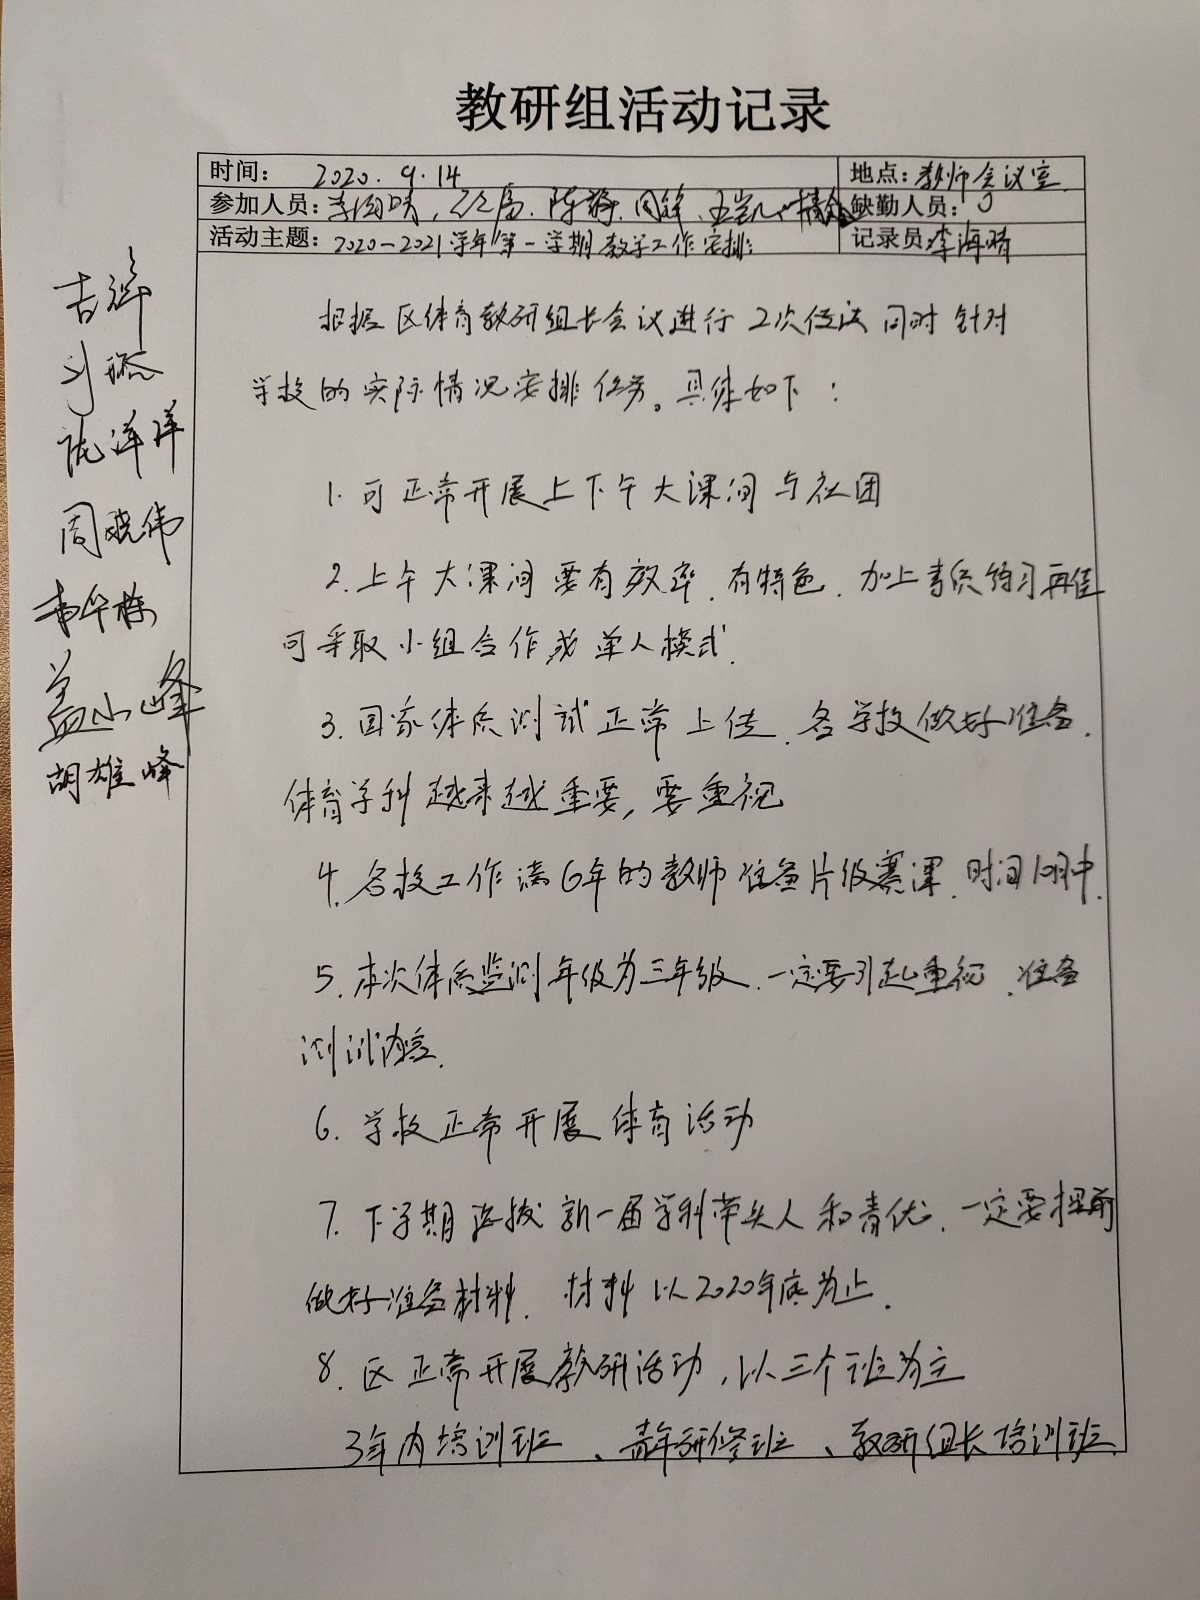 教研组活动记录
时间： 2020.9.14 地点：教师会议室
参加人员： 缺勤人员：0
活动主题：2020-2021学年第一学期教学工作安排 记录员：李海晴
根据区体育教研组长会议进行2次传达 同时针对
学校的实际情况安排任务。具体如下：
1.可正常开展上下午大课间与社团
2.上午大课间要有效率、有特色，加上素质练习再佳
可采取小组合作或单人模式.
3.国家体质测试正常上传、各学校做好准备.
体育学科越来越重要，要重视
4.各校工作满6年的教师准备片级赛课、时间10月中.
5.本次体质监测年级为三年级、一定要引起重视、准备
测试内容.
6.学校正常开展体育活动
7.下学期选拔新一届学科带头人和青优、一定要提前
做好准备材料、材料以2020年底为止.
8.区正常开展教研活动，以三个班为主
3年内培训班、青年研修班、教研组长培训班.
吉祥
刘
洋洋
周晓伟
盖小峰
胡雄峰